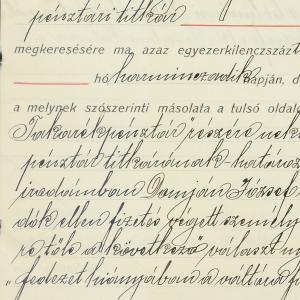 pénztári titkár
megkeresésére ma, azaz egyezerkilenczszáz
hó harminczadik napján, d
a melynek szószerinti másolata a tulsó oldala
Takarékpénztár" részére nek
pénztár titkárának-határoz
irodámban Damján József
dók ellen fizetés végett személy
re tőle a következő választ ny
„fedezet hiányában a váltóna f